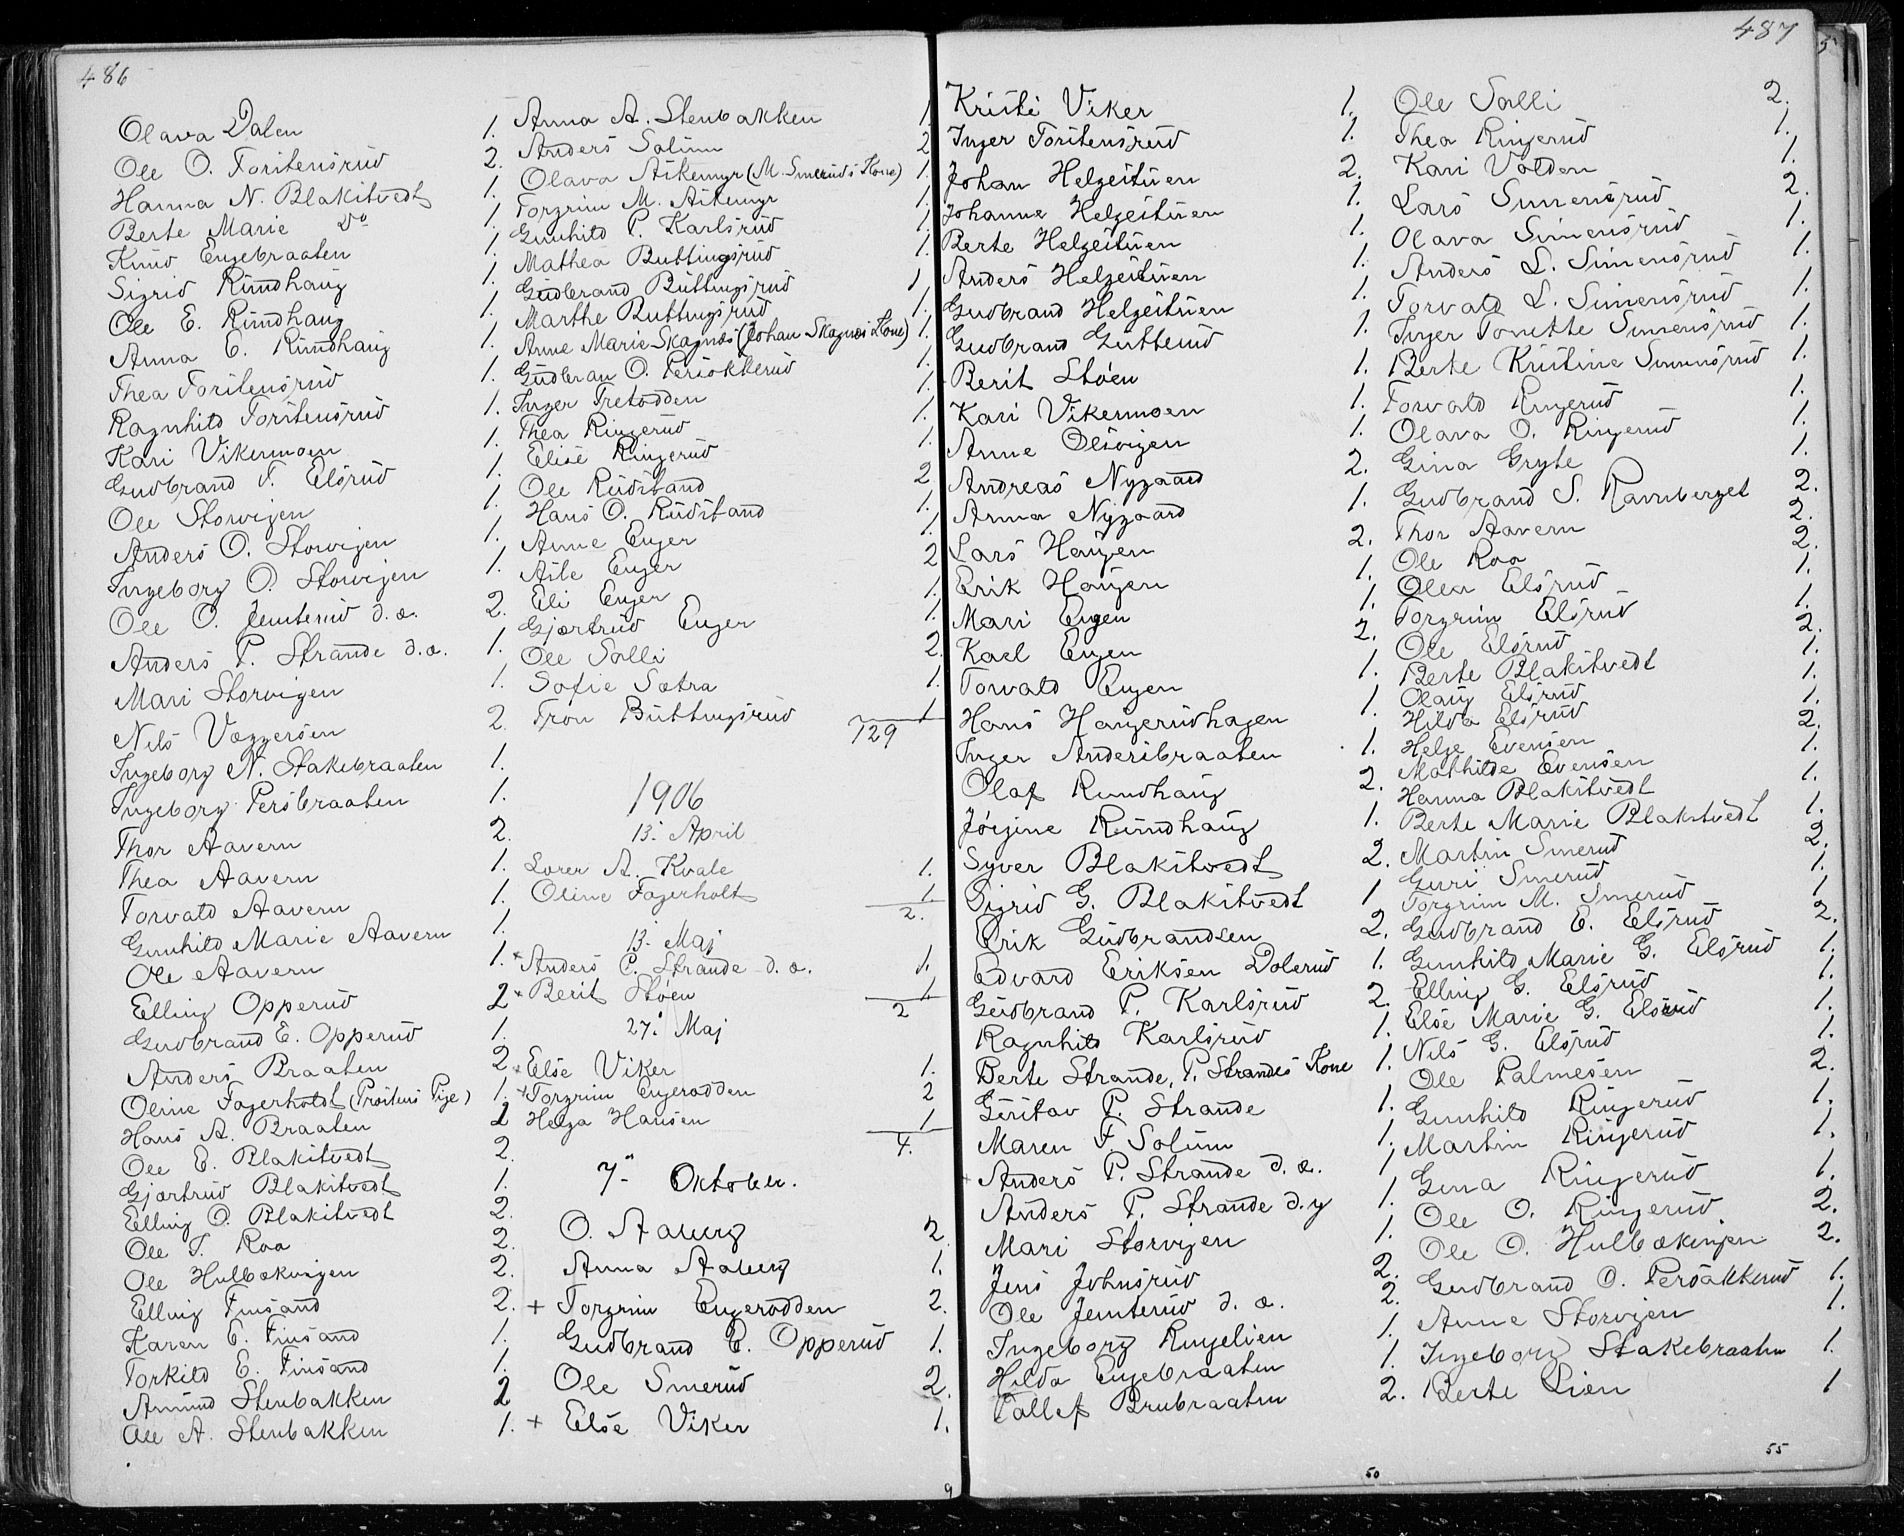 486
Olava Dalen 1.
Ole O. Torstensrud 2.
Hanna N. Blakstvedt 1.
Berte Marie Do 1.
Knud Engebraaten 1.
Sigrid Rundhaug 1.
Ole E. Rundhaug 1.
Anna E. Rundhaug 1.
Thea Torstensrud 1.
Ragnhild Torstensrud 1.
Kari Vikermoen 1.
Gudbrand T. Elsrud 1.
Ole Storvigen 1.
Anders O. Storvigen 1.
Ingeborg O. Storvigen 1.
Ole O. Jemterud d.æ. 2.
Anders P. Strande d.æ. 1.
Mari Storvigen 1.
Nils Væggersen 2.
Ingeborg N. Stakebraaten 1.
Ingeborg Persbraaten 1.
Thor Aavern 2.
Thea Aavern 1.
Torvald Aavern 1.
Gunhild Marie Aavern 1.
Ole Aavern 1.
Elling Opperud 2
Gudbrand E. Opperud 1.
Anders Braaten 2.
Oline Fagerholdt (Prestens Pige) 1.
Hans A. Braaten 2
Ole E. Blakstvedt 2.
Gjertrud Blakstvedt 1.
Elling O. Blakstvedt 2.
Ole T. Roa 2.
Ole Hulbækvigen 2.
Elling Finsand 2.
Karen E. Finsand 1.
Torkild E. Finsand 1.
Amund Stenbakken 2
Ole A. Stenbakken 1.
Anna A. Stenbakken 1.
Anders Solum 2
Olava Askemyr (M. Smeruds Kone) 1.
Torgrim M. Askemyr 1.
Gunhild P. Karlsrud 1.
Mathea Buttingsrud 1
Gudbrand Buttingsrud 1
Marthe Buttingsrud 1.
Anne Marie Skagnæs (Johan Skagnæs Kone) 1.
Gudbran O. Persökkerud 1.
Inger Tretodden 1
Thea Ringerud 1.
Elise Ringerud 1.
Ole Rudstand 2
Hans O. Rudstand 1.
Anne Enger 1.
Aste Enger 2
Eli Enger 1.
Gjærtrud Enger 1.
Ole Solli 2.
Sofie Sætra 1.
Tron Buttingsrud 1
729
1906
13. April
Lorer A. Kvale 1.
Oline Fagerholt 1.
2.
13. Maj
+ Anders P. Strande d.æ. 1.
+ Berit Støen 1
2
27. Maj
+ Else Viker 1.
+ Torgrim Engerodden 2
Helga Hansen 1
4.
7. Oktober.
O. Aaberg 2.
Anna Aaberg 1.
+ Torgrim Engerodden 2.
Gudbrand E. Opperud 1.
Ole Smerud 2.
+ Else Viker 1.
9
487
Kristi Viker 1.
Inger Torstensrud 1.
Johan Helgestuen 2.
Johanne Helgestuen 1.
Berte Helgestuen 1.
Anders Helgestuen 1.
Gudbrand Helgestuen 1.
Gudbrand Gutterud 1.
Berit Støen 1.
Kari Vikermoen 1.
Anne Olsvigen 1.
Andreas Nygaard 2.
Anna Nygaard 1.
Lars Haugen 2.
Erik Haugen 1.
Mari Engen 1.
Karl Engen 2.
Torvald Engen 1.
Hans Haugerudhagen 1
Inger Andersbraaten 1.
Olaf Rundhaug 2.
Jørgine Rundhaug 1.
Syver Blakstvedt 2.
Sigrid G. Blakstvedt 1
Erik Gudbrandsen 2.
Edvard Eriksen Dolerud 1.
Gudbrand P. Karlsrud 2.
Ragnhild Karlsrud 1.
Berte Strande, P. Strandes Kone 1.
Gustav P. Strande 1.
Maren F. Solum 1.
+ Anders P. Strande d.æ. 1
Anders P. Strande d.y 1.
Mari Storvigen 1.
Jens Johnsrud 2.
Ole Jemterud d.æ. 2.
Ingeborg Ringelien 1.
Hilda Engebraaten 1.
Tollef Brubraaten 2.
50
Ole Solli 2.
Thea Ringerud 1.
Kari Volden 1.
Lars Simensrud 2.
Olava Simensrud 1.
Anders L. Simensrud 1.
Torvald L. Simensrud 1.
Inger Tomtte Simensrud 1.
Berte Kristine Simensrud 1.
Torvald Ringerud 1.
Olava O. Ringerud 1.
Gina Gryte 1.
Gudbrand S. Ravnberget 2.
Thor Aavern 2.
Ole Roa 2.
Olea Elsrud 1.
Torgrim Elsrud 1.
Ole Elsrud 2.
Berte Blakstvedt 1.
Olaug Elsrud 1.
Hilda Elsrud 1.
Helge Evensen 2.
Mathilde Evensen 1.
Hanna Blakstvedt 1.
Berte Marie Blakstvedt 1.
Martin Smerud 2.
Guri Smerud 1.
Torgrim M. Smerud 1
Gudbrand E. Elsrud 2.
Gunhild Marie G. Elsrud 1.
Elling G. Elsrud 1.
Else Marie G. Elsrud 1.
Nils G. Elsrud 1.
Ole Palmesen 2.
Gunhild Ringerud 1.
Martin Ringerud 1.
Gina Ringerud 1.
Ole O. Ringerud 2.
Ole O. Hulbækvigen 2.
Gudbrand O. Persøkkerud 1.
Anne Storvigen 1.
Ingeborg Stakebraaten 1.
Berte Lien 1
55